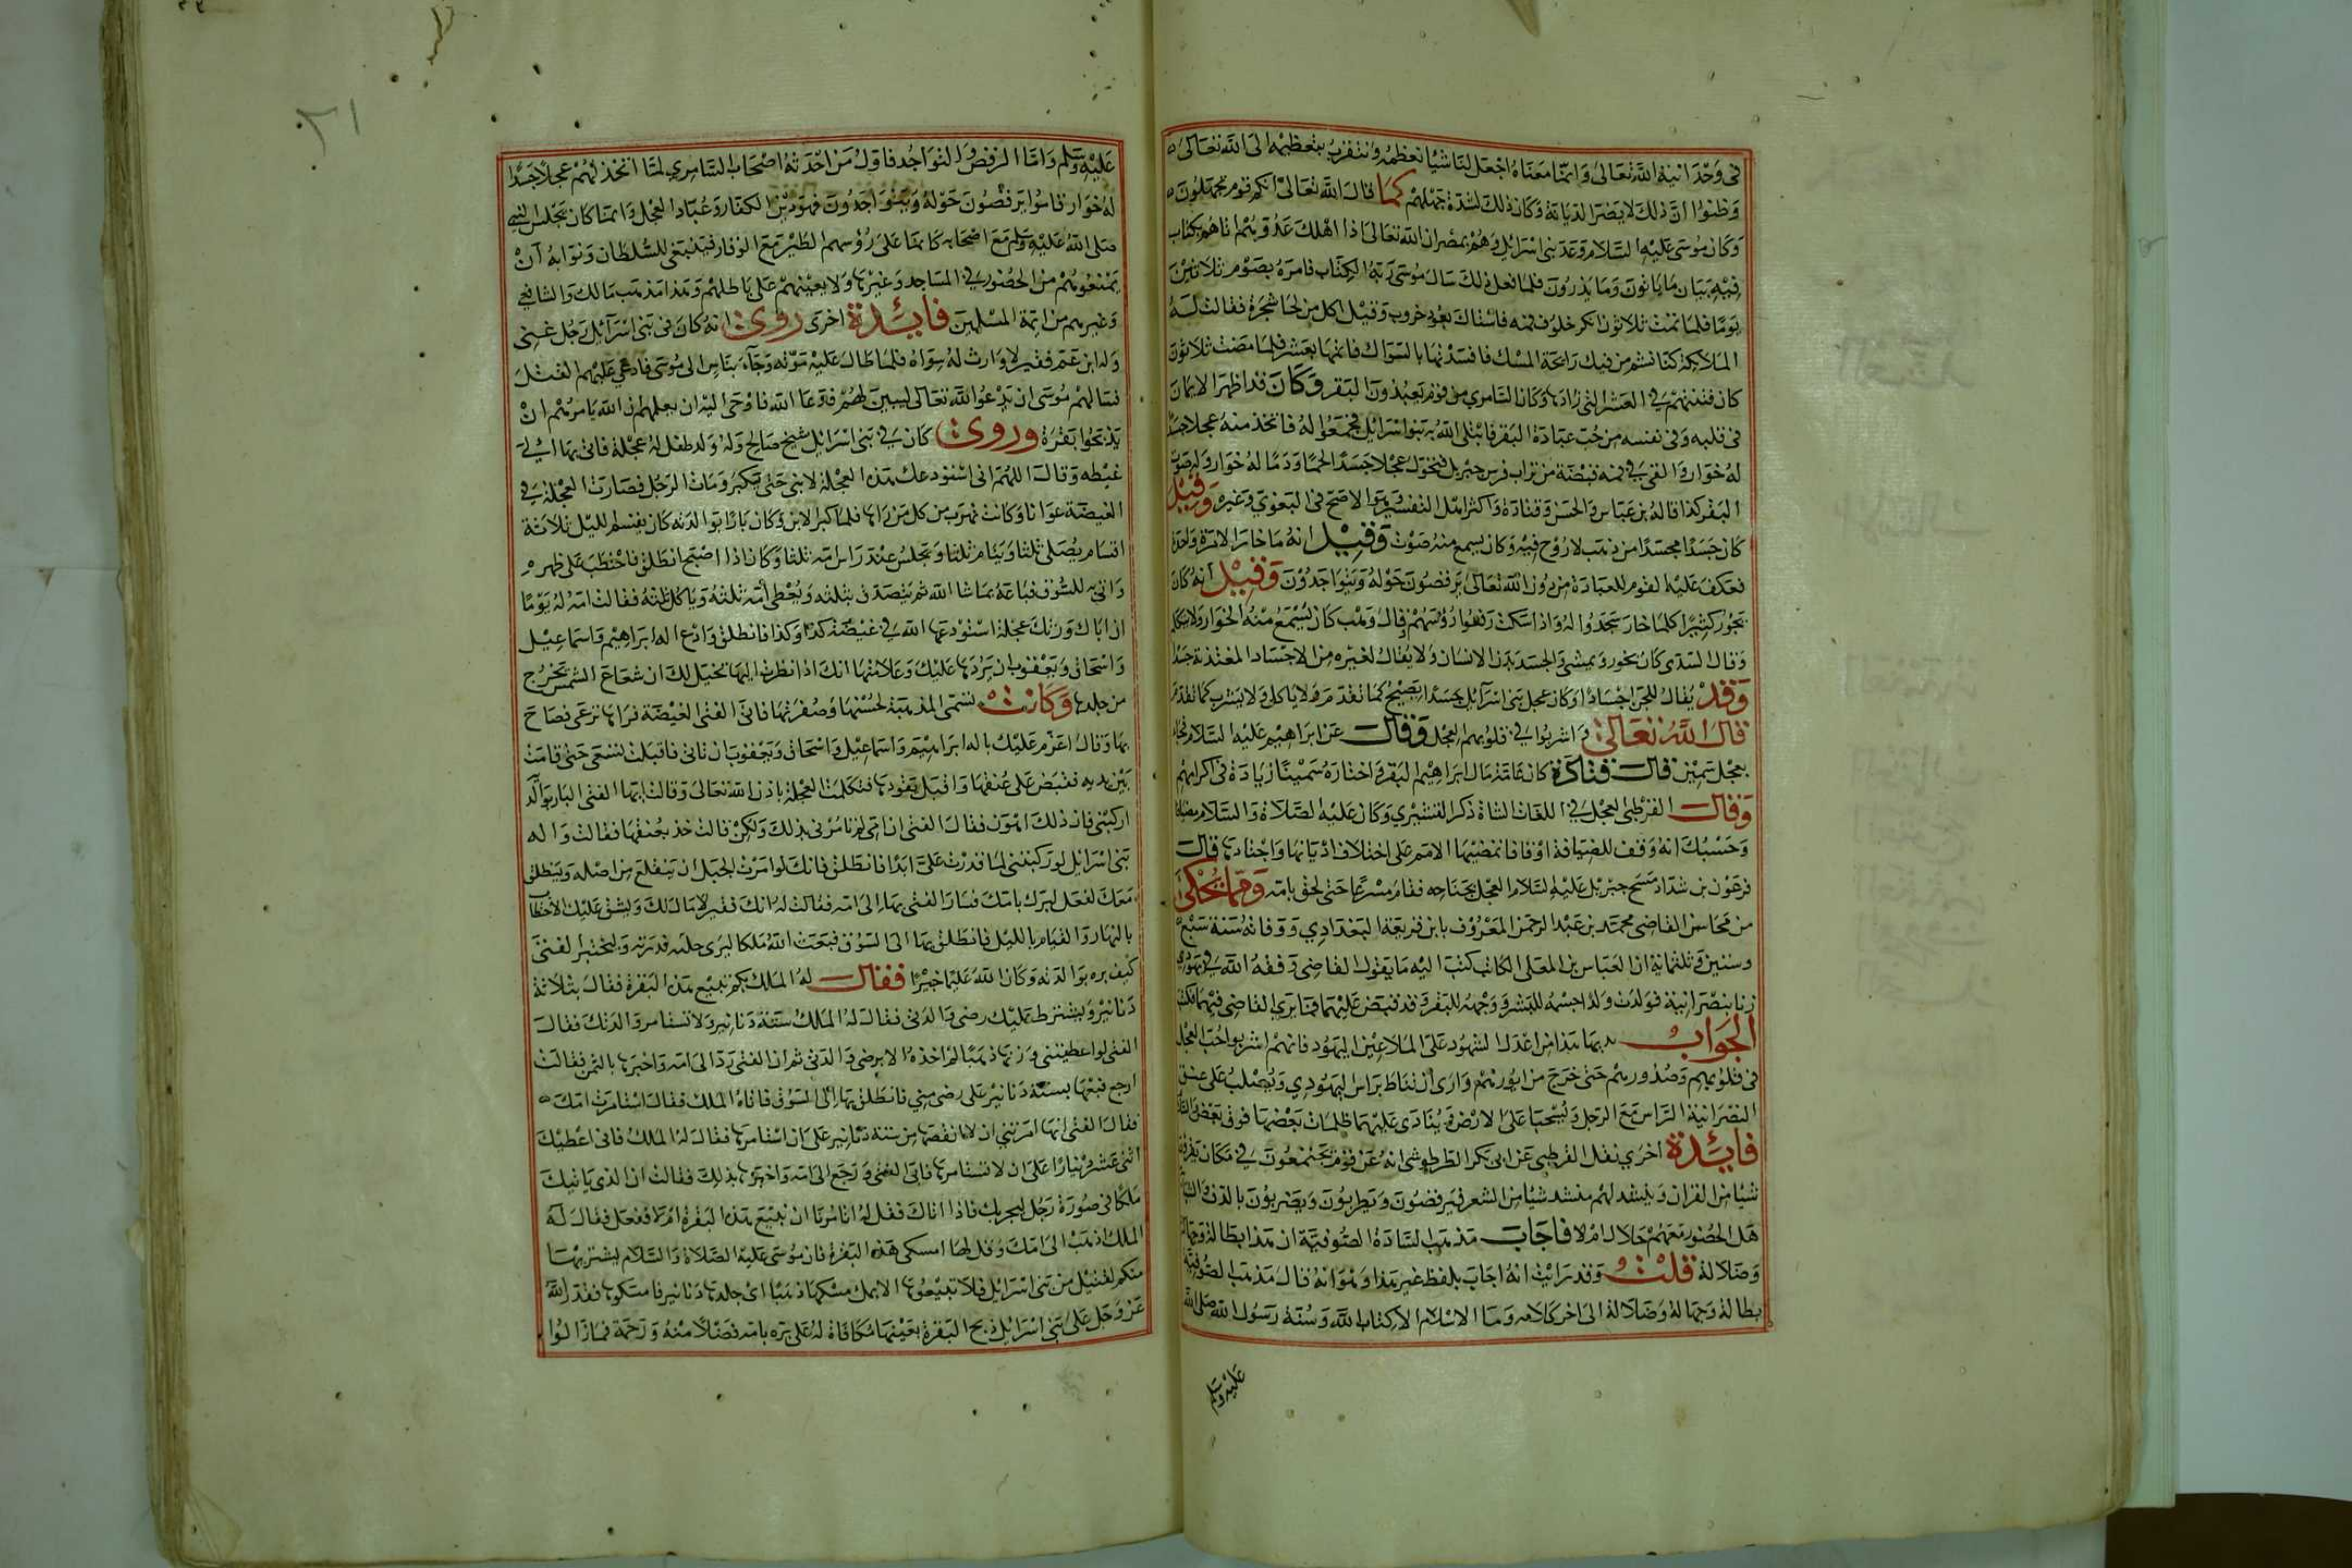 في وحدانية الله تعالى وانما معناه اجعل لنا شيا نعظمه ونتقرب بتعظيمه الى الله تعالى
وظنوا ان ذلك لا يضر الديانة وكان ذلك لشدة جهلهم كما قال الله تعالى انكم قوم تجهلون
وكان موسى عليه السلام وعد بني اسرايل وهم بمصر ان الله تعالى اذا اهلك عدوهم اتاهم بكتاب
فيه بيان ما ياتون وما يذرون فلما فعل ذلك سال موسى ربه الكتاب فامره بصوم ثلاثين
يوما فلما تمت ثلاثون انكر خلوف فمه فاستاك بعود خروب وقيل اكل من لحا شجرة فقالت له
الملايكة كنا نشم من فيك رايحة المسك فافسدتها بالسواك فاتمها بعشر فلما مضت ثلاثون
كان فتنتهم في العشر التي زادها وكان السامري من قوم يعبدون البقر وكان قد اظهر الايمان
في قلبه وفي نفسه من حب عبادة البقر فابتلى الله به بنوا اسرايل فجمعوا له فاتخذ منه عجلا جسدا
له خوار والقى في فمه قبضة من تراب فرس جبريل فتحول عجلا جسدا لحما ودما له خوار وله صوت
البقر كذا قاله بن عباس والحسن وقتادة واكثر اهل التفسير وهو الاصح في البغوي وغيره وقيل
كان جسدا مجسدا من ذهب لا روح فيه وكان يسمع منه صوت وقيل انه ما خار الا مرة واحدة
فعكف عليه القوم للعبادة من دون الله تعالى يرقصون حوله ويتواجدون وقيل انه كان
يخور كثيرا كلما خار سجدوا له واذا سكت رفعوا رؤسهم وقال وهب كان يسمع منه الخوار ولا يتكلم
وقال السدي كان يخور ويمشي والجسد بدن الانسان ولا يقال لغيره من الاجساد المغتذية جسد
وقد يقال للجن اجسادا وكان عجل بني اسرايل جسدا يصيح كما تقدم ولا ياكل ولا يشرب كما تقدم
قال الله تعالى واشربوا في قلوبهم العجل وقال عن ابراهيم عليه السلام فجا
بعجل سمين قال قتادة كان عامة مال ابراهيم البقر واختاره سمينا زيادة في اكرامهم
وقال القرطبي العجل في اللغات الشاة ذكر القشيري وكان عليه الصلاة والسلام مضيافا
وحسبك انه وقف للضيافة اوقافا تمضيها الامم على اختلاف اديانها واجنادها قال
فرعون بن شداد مسح جبريل عليه السلام العجل بجناحه فقام مسرعا حتى لحق بامه ومما يحكى
من محاسن القاضي محمد بن عبد الرحمن المعروف بابن قريعة البغدادي ووفاته سنة سبع
وستين وثلثماية ان العباس بن المعلى الكاتب كتب اليه ما يقول القاضي وفقه الله في يهودي
زنا بنصرانية فولدت ولدا جسمه للبشر ووجهه للبقر وقد قبض عليهما فما يري القاضي فيهما فكتب
الجواب بديها هذا من اعدل الشهود على الملاعين اليهود فانهم اشربوا حب العجل
في قلوبهم وصدورهم حتى خرج من ايورهم وارى ان تناط براس اليهودي ويصلب على عنق
النصرانية الراس مع الرجل ويسحبا على الارض وينادى عليهما ظلمات بعضها فوق بعض
فايدة اخرى نقل القرطبي عن ابي بكر الطرطوشي انه عن قوم يجتمعون في مكان يقرؤن
شيا من القران وينشد لهم منشد شيا من الشعر فيرقصون ويطربون ويضربون بالدف
هل الحضور معهم حلال ام لا فاجاب مذهب السادة الصوفية ان هذا بطالة وجهالة
وضلالة قلت وقد رايت انه اجاب بلفظ غير هذا وهو انه قال مذهب الصوفية
بطالة وجهالة وضلالة الى اخر كلامه وما الاسلام الا كتاب الله وسنة رسول الله صلى الله
عليه وسلم
عليه وسلم واما الرقص والتواجد فاول من احدثه اصحاب السامري لما اتخذ لهم عجلا جسدا
له خوار قاموا يرقصون حوله ويتواجدون فهو دين الكفار وعباد العجل وانما كان مجلس النبي
صلى الله عليه وسلم مع اصحابه كانما على رؤسهم الطير مع الوقار فينبغي للسلطان ونوابه ان
يمنعوهم من الحضور في المساجد وغيرها ولا يعينهم على باطلهم وهذا مذهب مالك والشافعي
وغيرهم من ايمة المسلمين فايدة اخرى روي انه كان في بني اسرايل رجل غني
وله ابن عم فقير لا وارث له سواه فلما طال عليه موته وجاء بناس الى موسى فادعى عليهم القتل
فسالهم موسى ان يدعوا الله تعالى ليبين لهم فدعا الله فاوحى اليه ان يعلمهم ان الله يامرهم ان
يذبحوا بقرة وروي كان في بني اسرايل شيخ صالح وله ولد طفل له عجلة فاتى بها الى
غيظه وقال اللهم اني استودعك هذه العجلة لابني حتى يكبر ومات الرجل فصارت العجلة في
الغيضة عوانا وكانت تهرب من كل من راها فلما كبر الابن وكان بارا بوالدته كان يقسم الليل ثلاثة
اقسام يصلي ثلثا وينام ثلثا ويجلس عند راس امه ثلثا وكان اذا اصبح انطلق فاحتطب على ظهره
واتى به للسوق فباعه بما شا الله ثم يتصدق بثلثه ويعطي امه ثلثه وياكل ثلثه فقالت امه له يوما
ان اباك ورثك عجلة استودعها الله في غيضة كذا وكذا فانطلق وادع اله ابراهيم واسماعيل
واسحاق ويعقوب ان يردها عليك وعلامتها انك اذا نظرت اليها يخيل لك ان شعاع الشمس يخرج
من جلدها وكانت تسمى المذهبة لحسنها وصفرتها فاتى الفتى الغيضة فراها ترعى فصاح
بها وقال اعزم عليك باله ابراهيم واسماعيل واسحاق ويعقوب ان تاتي فاقبلت تسعى حتى قامت
بين يديه فقبض على عنقها واقبل يقودها فتكلمت العجلة باذن الله تعالى وقالت ايها الفتى البار بوالده
اركبني فان ذلك اهون فقال الفتى ان امي لم تامرني بذلك ولكن قالت خذ بعنقها فقالت واله
بني اسرايل لو ركبتني لما قدرت علي ابدا فانطلق فانك لو امرت الجبل ان ينقلع من اصله وينطلق
معك لفعل لبرك بامك فسار الفتى بها الى امه فقالت له انك فقير لا مال لك ويشق عليك الاحتطاب
بالنهار والقيام بالليل فانطلق بها الى السوق فبعث الله ملكا ليرى خلقه قدرته وليختبر الفتى
كيف بره بوالدته وكان الله عليما خبيرا فقال له الملك بكم تبيع هذه البقرة فقال بثلاثة
دنانير ويشترط عليك رضى والدتي فقال له الملك ستة دنانير ولا تستامر والدتك فقال
الفتى لو اعطيتني وزنها ذهبا لم اخذه الا برضى والدتي ثم ان الفتى رد الى امه واخبرها بالثمن فقالت
ارجع فبعها بستة دنانير على رضى مني فانطلق بها الى السوق فاتاه الملك فقال استامرت امك
فقال الفتى انها امرتني ان لا انقصها من ستة دنانير على ان استامرها فقال له الملك فاني اعطيك
اثني عشر دينارا على ان لا تستامرها فابى الفتى ورجع الى امه واخبرها بذلك فقالت ان الذي ياتيك
ملكا في صورة رجل ليجربك فاذا اتاك فقل له اتامرنا ان نبيع هذه البقرة ام لا ففعل فقال له
الملك اذهب الى امك وقل لها امسكي هذه البقرة فان موسى عليه الصلاة والسلام يشتريها
منكم لقتيل من بني اسرايل فلا تبيعوها الا بملء مسكها ذهبا اي جلدها دنانير فامسكوها فقدر الله
عز وجل على بني اسرايل ذبح البقرة بعينها مكافاة له على بره بامه فضلا منه ورحمة فما زالوا